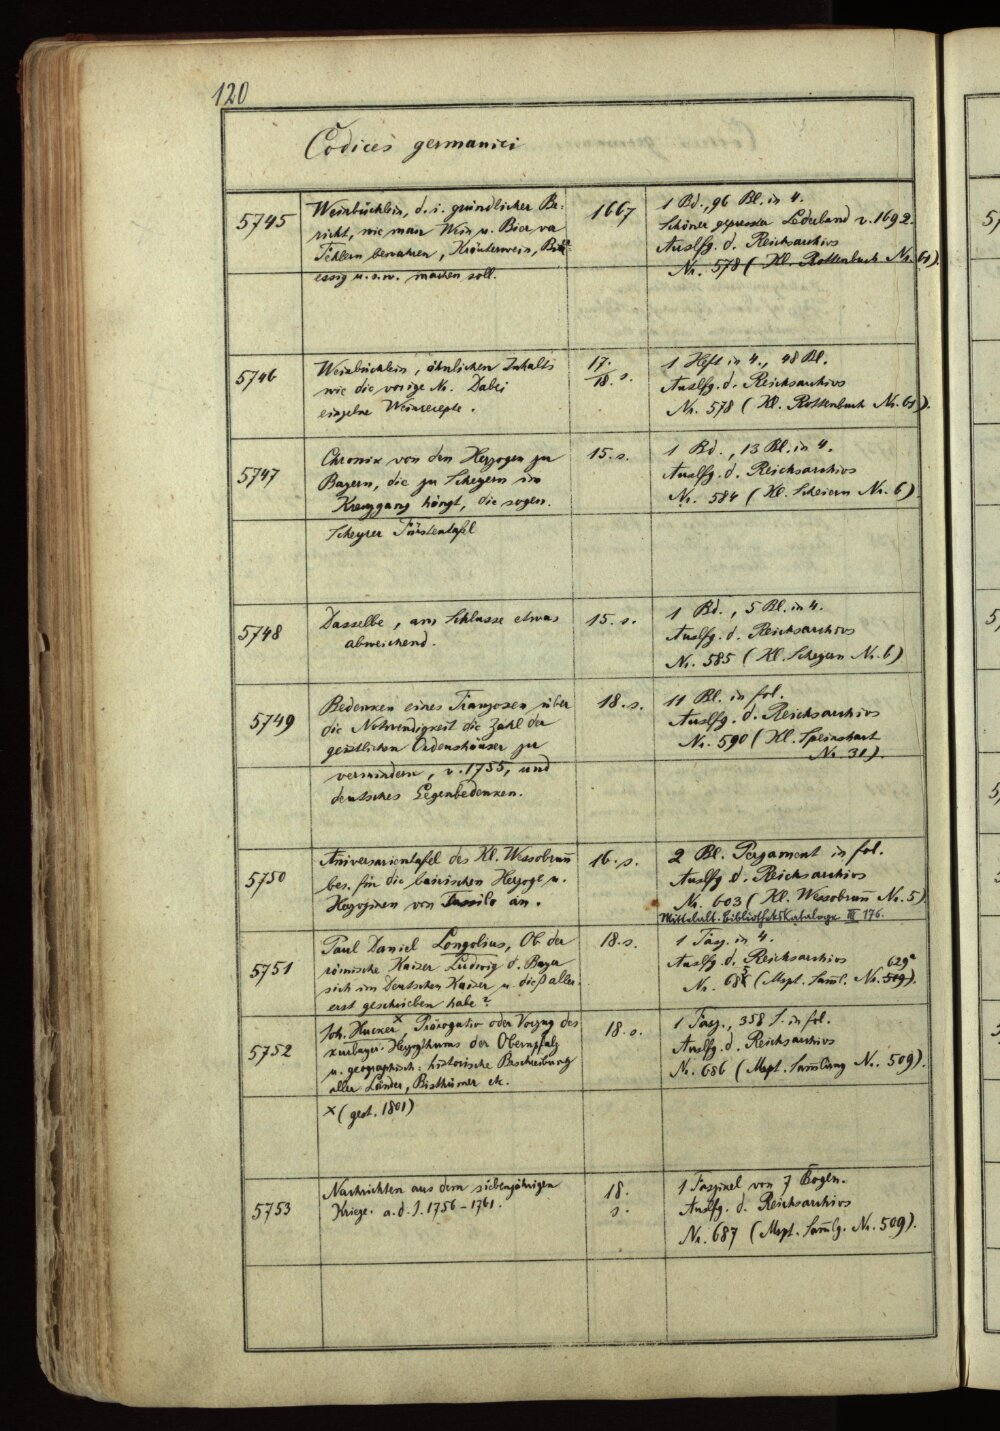 120
Codices germanici
5745
Weinbüchlein, d. i. gründlicher Be-
richt, wie man Wein u. Bier vor
Fehlern bewahren, Kräuterwein, Bier-
essig u. s. w. machen soll.
1667
1 Bd., 96 Bl. in 4.
Schöner gepresster Lederband v. 1692.
Auslfg. d. Reichsarchivs
Nr. 578 (Kl. Rottenbuch Nr. 61).
5746
Weinbüchlein, ähnlichen Inhalts
wie die vorige Nr. Dabei
einzelne Weinrecepte.
17./18. s.
1 Heft in 4., 48 Bl.
Auslfg. d. Reichsarchivs
Nr. 578 (Kl. Rottenbuch Nr. 61).
5747
Chronik von den Herzogen zu
Bayern, die zu Scheyern im
Kreuzgang hängt, die sogen.
Scheyrer Fürstentafel
15. s.
1 Bd., 13 Bl. in 4.
Auslfg. d. Reichsarchivs
Nr. 584 (Kl. Scheiern Nr. 6)
5748
Dasselbe, am Schlusse etwas
abweichend.
15. s.
1 Bd., 5 Bl. in 4.
Auslfg. d. Reichsarchivs
Nr. 585 (Kl. Scheyern Nr. 6)
5749
Bedenken eines Franzosen über
die Nothwendigkeit die Zahl der
geistlichen Ordenshäuser zu
vermindern, v. 1755, und
deutsches Gegenbedenken.
18. s.
11 Bl. in fol.
Auslfg. d. Reichsarchivs
Nr. 590 (Kl. Speinshart
Nr. 31).
5750
Anniversarientafel des Kl. Wessobrunn
bes. für die bairischen Herzoge u.
Herzoginen von Tassilo an.
16. s.
2 Bl. Pergament in fol.
Auslfg d. Reichsarchivs
Nr. 603 (Kl. Wessobrunn Nr. 5)
Mittelalt. Bibliothekskataloge III 176.
5751
Paul Daniel Longolius, Ob der
römische Kaiser Ludwig d. Bayer
sich im Deutschen Kaiser u. dieß aller-
erst geschrieben habe?
18. s.
1 Fasz. in 4.
Auslfg d. Reichsarchivs
629a
Nr. 685 (Mspt. Samml. Nr. 519).
5752
Joh. Hucker x, Prärogativ oder Vorzug des
kurbayer. Herzogthums der Obernpfalz
u. geographisch-historische Beschreibung
aller Länder, Bisthümer etc.
x (gest. 1801)
18. s.
1 Fasz., 358 S. in fol.
Auslfg. d. Reichsarchivs
Nr. 686 (Mspt. Sammlung Nr. 509).
5753
Nachrichten aus dem siebenjährigen
Kriege. a. d. J. 1756-1761.
18.
s.
1 Faszikel von 7 Bogen.
Auslfg. d. Reichsarchivs
Nr. 687 (Mspt. Sammlg. Nr. 509).